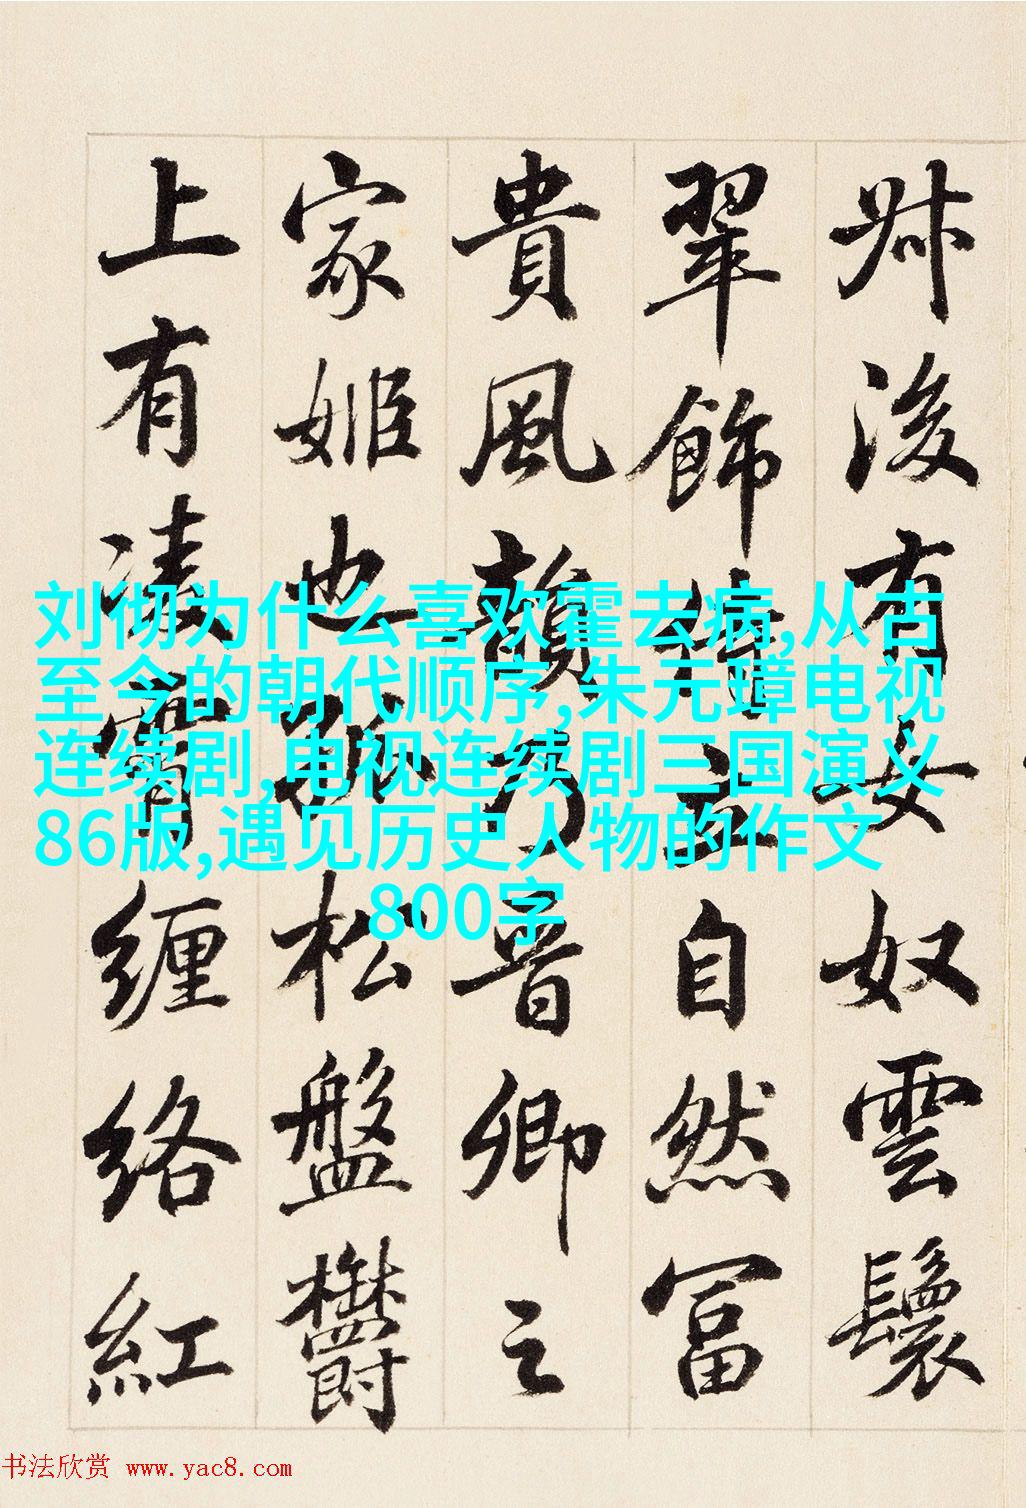 叔後有女奴雲鬟
翠飾立自然富
貴風韻乃晋卿之
家姬也孤松盤鬱
上有凌霄纏络紅
刘彻为什么喜欢霍去病,从古
至今的朝代顺序,朱元璋电视
连续剧,电视连续剧三国演义
86版,遇见历史人物的作文
800字
书法欣赏 www.yac8.com